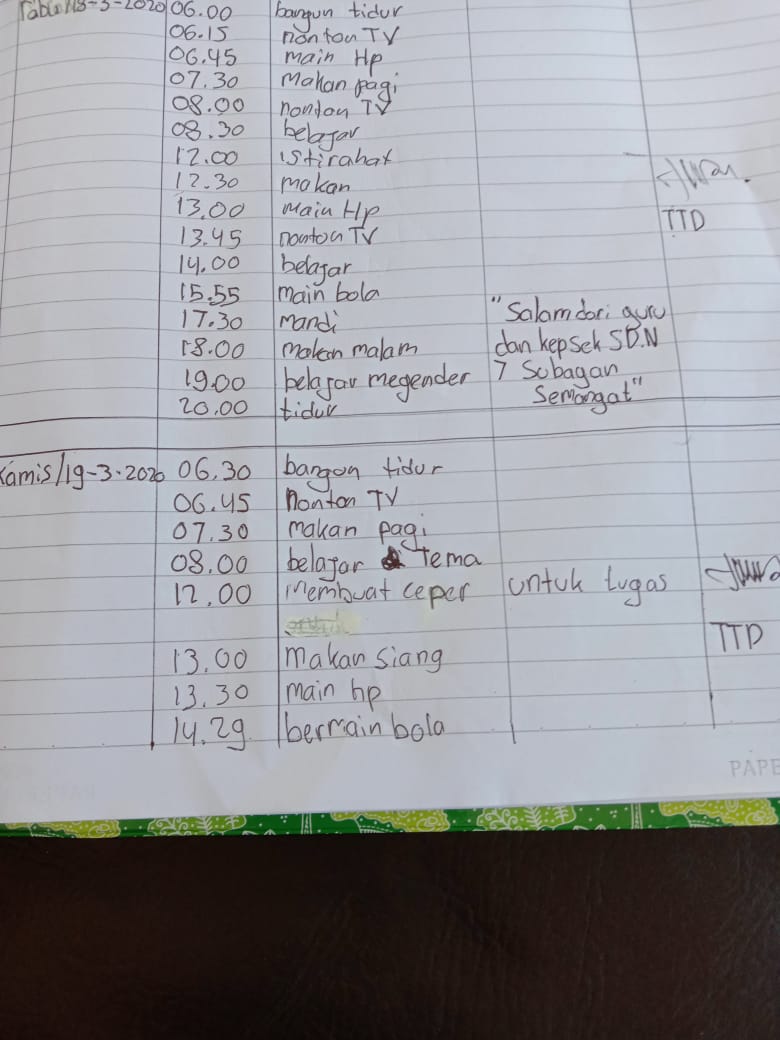 Rabu/18-3-2020 06.00 bangun tidur
06.15 nonton TV
06.45 main Hp
07.30 Makan pagi
08.00 nonton TV
08.30 belajar
12.00 istirahat
12.30 makan
13.00 main Hp
13.45 nonton TV
TTD
14.00 belajar
15.55 main bola
17.30 Mandi "Salam dari guru
18.00 makan malam dan kepsek SD.N
19.00 belajar megender 7 Subagan
20.00 tidur Semangat"
Kamis/19-3-2020 06.30 bangon tidur
06.45 Nonton TV
07.30 makan pagi
08.00 belajar Tema
12.00 Membuat ceper untuk tugas
TTD
13.00 makan siang
13.30 main hp
14.29 bermain bola
PAPE